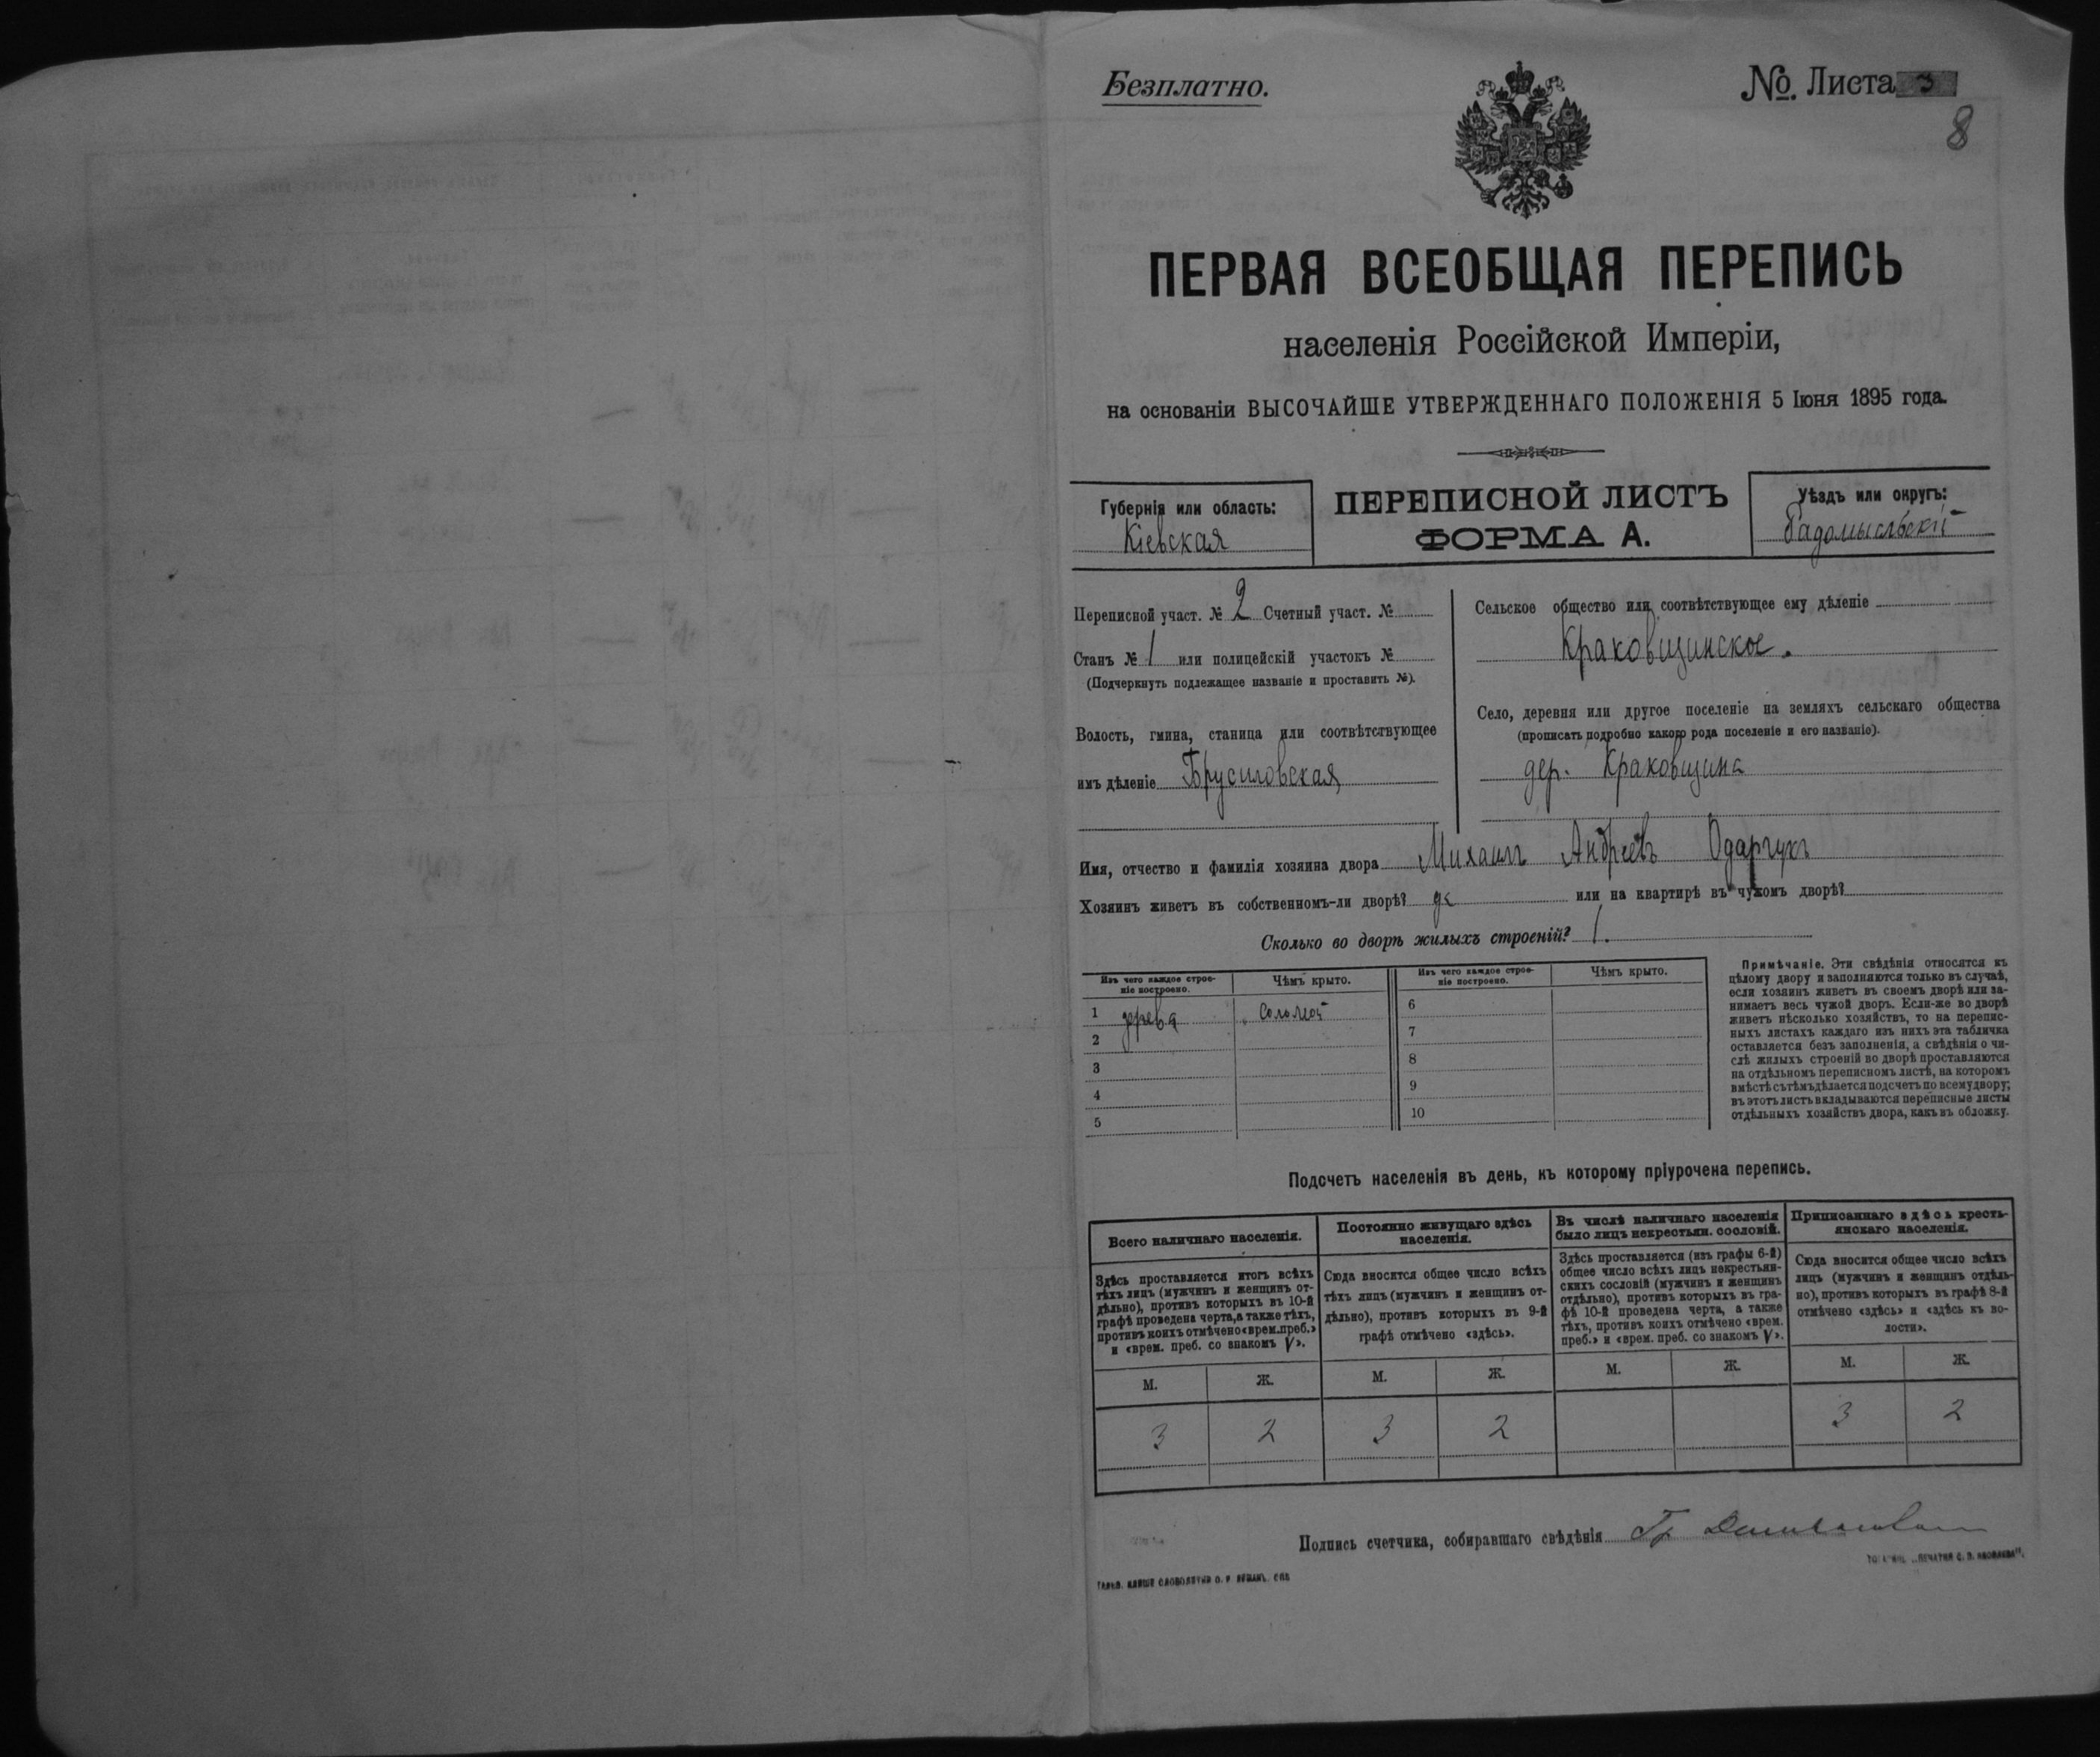 Безплатно.
№ Листа 3
8
ПЕРВАЯ ВСЕОБЩАЯ ПЕРЕПИСЬ
населенія Россійской Имперіи,
на основаніи ВЫСОЧАЙШЕ УТВЕРЖДЕННАГО ПОЛОЖЕНІЯ 5 Іюня 1895 года.
Губернія или область:
Кіевская
ПЕРЕПИСНОЙ ЛИСТЪ
ФОРМА А.
Уѣздъ или округъ:
Радомысльскій
Переписной участ. № 2 Счетный участ. №
Станъ № 1 или полицейскій участокъ №
(Подчеркнуть подлежащее названіе и проставить №).
Волость, гмина, станица или соотвѣтствующее
имъ дѣленіе Брусиловская
Сельское общество или соотвѣтствующее ему дѣленіе
Краковщинское.
Село, деревня или другое поселеніе на земляхъ сельскаго общества
(прописать подробно какого рода поселеніе и его названіе).
дер. Краковщина
Имя, отчество и фамилія хозяина двора Михаилъ Андреевъ Одарчукъ
Хозяинъ живетъ въ собственномъ-ли дворѣ? да или на квартирѣ въ чужомъ дворѣ?
Сколько во дворѣ жилыхъ строеній? 1.
Изъ чего каждое строе-
ніе построено.
Чѣмъ крыто.
Изъ чего каждое строе-
ніе построено.
Чѣмъ крыто.
1 дерева соломой 6
2 7
3 8
4 9
5 10
Примѣчаніе. Эти свѣдѣнія относятся къ
цѣлому двору и заполняются только въ случаѣ,
если хозяинъ живетъ въ своемъ дворѣ или за-
нимаетъ весь чужой дворъ. Если-же во дворѣ
живетъ нѣсколько хозяйствъ, то на перепис-
ныхъ листахъ каждаго изъ нихъ эта табличка
оставляется безъ заполненія, а свѣдѣнія о чи-
слѣ жилыхъ строеній во дворѣ проставляются
на отдѣльномъ переписномъ листѣ, на которомъ
вмѣстѣ съ тѣмъ дѣлается подсчетъ по всему двору;
въ этотъ листъ вкладываются переписные листы
отдѣльныхъ хозяйствъ двора, какъ въ обложку.
Подсчетъ населенія въ день, къ которому пріурочена перепись.
Всего наличнаго населенія.
Здѣсь проставляется итогъ всѣхъ
тѣхъ лицъ (мужчинъ и женщинъ от-
дѣльно), противъ которыхъ въ 10-й
графѣ проведена черта, а также тѣхъ,
противъ коихъ отмѣчено «врем. преб.»
и «врем. преб. со знакомъ V».
Постоянно живущаго здѣсь
населенія.
Сюда вносится общее число всѣхъ
тѣхъ лицъ (мужчинъ и женщинъ от-
дѣльно), противъ которыхъ въ 9-й
графѣ отмѣчено «здѣсь».
Въ числѣ наличнаго населенія
было лицъ некрестьян. сословій.
Здѣсь проставляется (изъ графы 6-й)
общее число всѣхъ лицъ некрестьян-
скихъ сословій (мужчинъ и женщинъ
отдѣльно), противъ которыхъ въ гра-
фѣ 10-й проведена черта, а также
тѣхъ, противъ коихъ отмѣчено «врем.
преб.» и «врем. преб. со знакомъ V».
Приписаннаго здѣсь кресть-
янскаго населенія.
Сюда вносится общее число всѣхъ
лицъ (мужчинъ и женщинъ отдѣль-
но), противъ которыхъ въ графѣ 8-й
отмѣчено «здѣсь» и «здѣсь къ во-
лости».
М. Ж. М. Ж. М. Ж. М. Ж.
3 2 3 2 3 2
Подпись счетчика, собиравшаго свѣдѣнія Гр